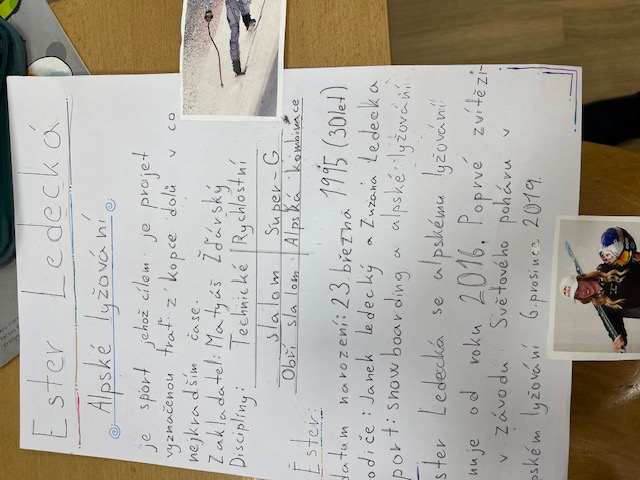 Ester Ledecká
Alpské lyžování
je sport jehož cílem je projet
vyznačenou trať z kopce dolů v co
nejkradším čase.
Zakladatel: Matyáš Žďárský
Disciplíny: Technické Rychlostní
slalom Super-G
Obří slalom Alpská kombinace
Ester:
datum narození: 23. března 1995 (30let)
odiče: Janek Ledecký a Zuzana Ledecká
port: snowboarding a alpské lyžování
ster Ledecká se alpskému lyžování
nuje od roku 2016. Poprvé zvítězi-
v závodu Světového poháru v
pském lyžování 6. prosince 2019.